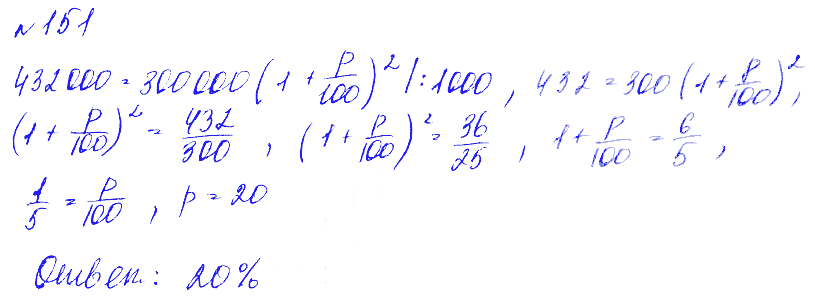 №151
432000 = 300000 (1 + p/100)² |:1000, 432 = 300 (1 + p/100)²,
(1 + p/100)² = 432/300, (1 + p/100)² = 36/25, 1 + p/100 = 6/5,
1/5 = p/100, p = 20
Ответ: 20%